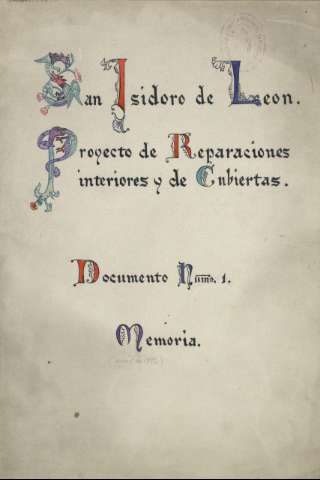 San Isidoro de Leon.
Proyecto de Reparaciones
interiores y de Cubiertas.
Documento Núm. 1.
Memoria.